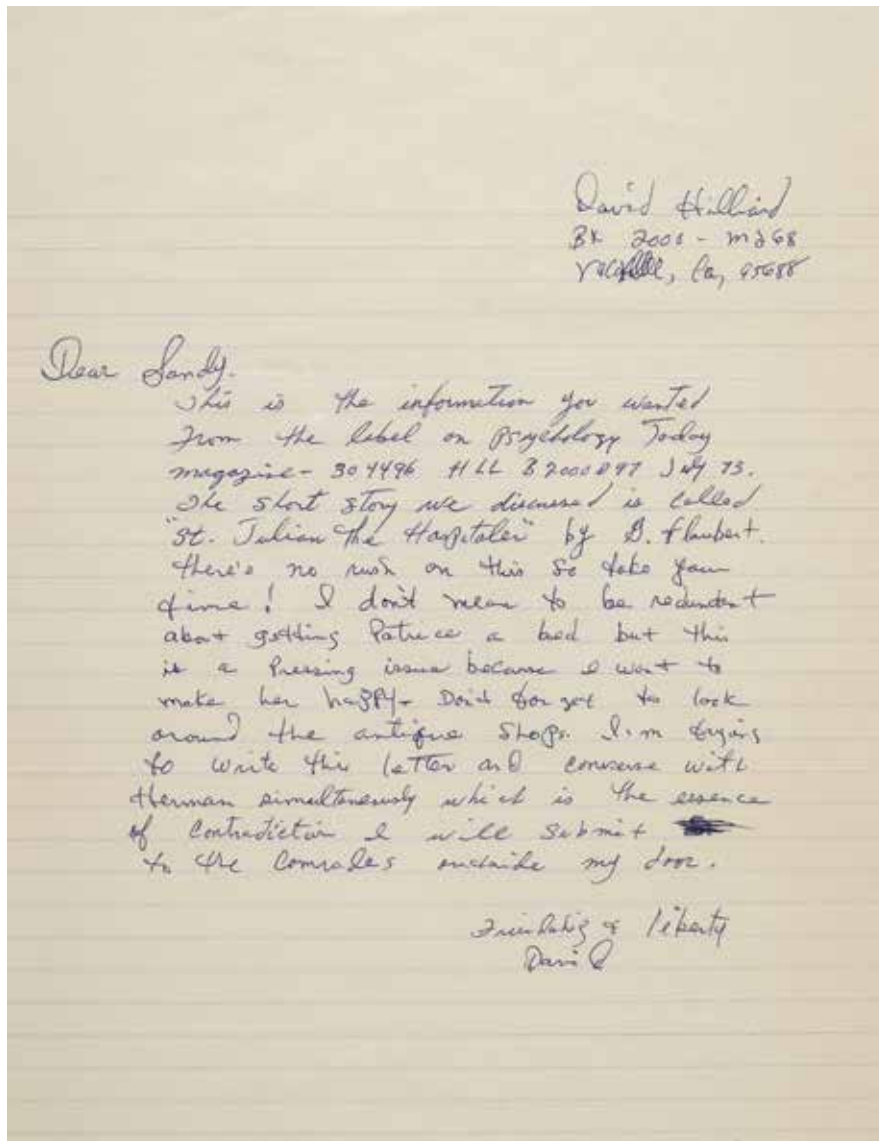 David Hilliard
BX 2000 - M268
Vacaville, Ca, 95688
Dear Sandy.
This is the information you wanted
From the label on Psychology Today
magazine - 304496 HLL B2000D97 July 73.
The short story we discussed is called
"St. Julian The Hospitaler" by G. Flaubert.
there's no rush on this so take your
time! I don't mean to be redundant
about getting Patrice a bed but this
is a Pressing issue because I want to
make her happy - Don't forget to look
around the antique shops. I'm trying
to write this letter and converse with
Herman simultaneously which is the essence
of Contradiction I will submit
to the Comrades outside my door.
Friendship & liberty
David